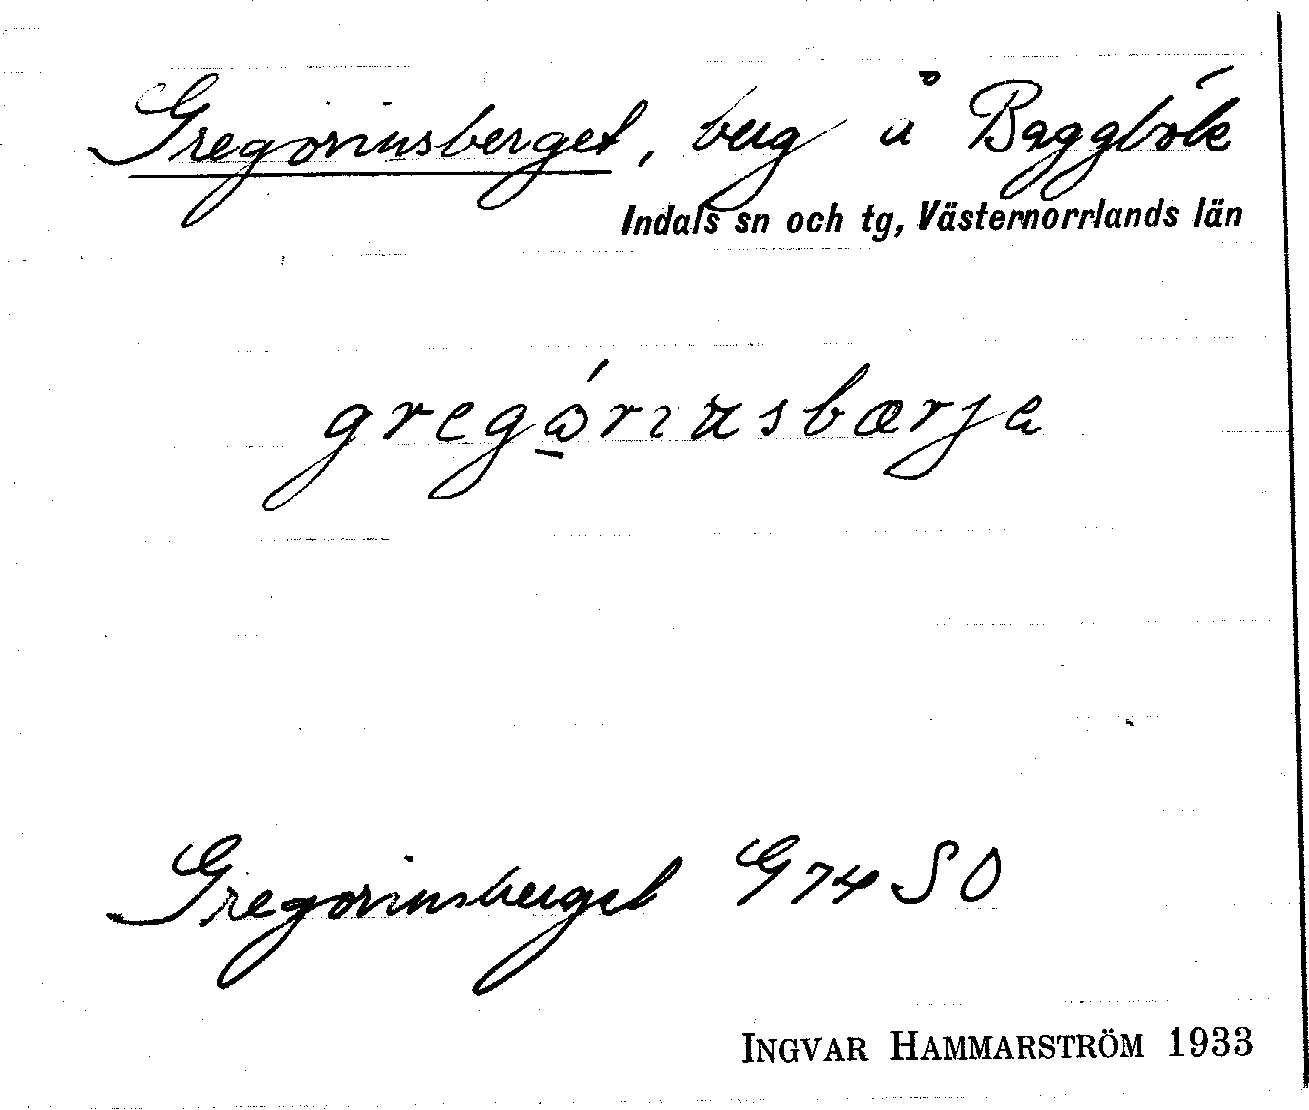 Gregoriusberget, berg å Baggböle
Indals sn och tg, Västernorrlands län
gregóriusbærja
Gregoriusberget G74 SO
INGVAR HAMMARSTRÖM 1933